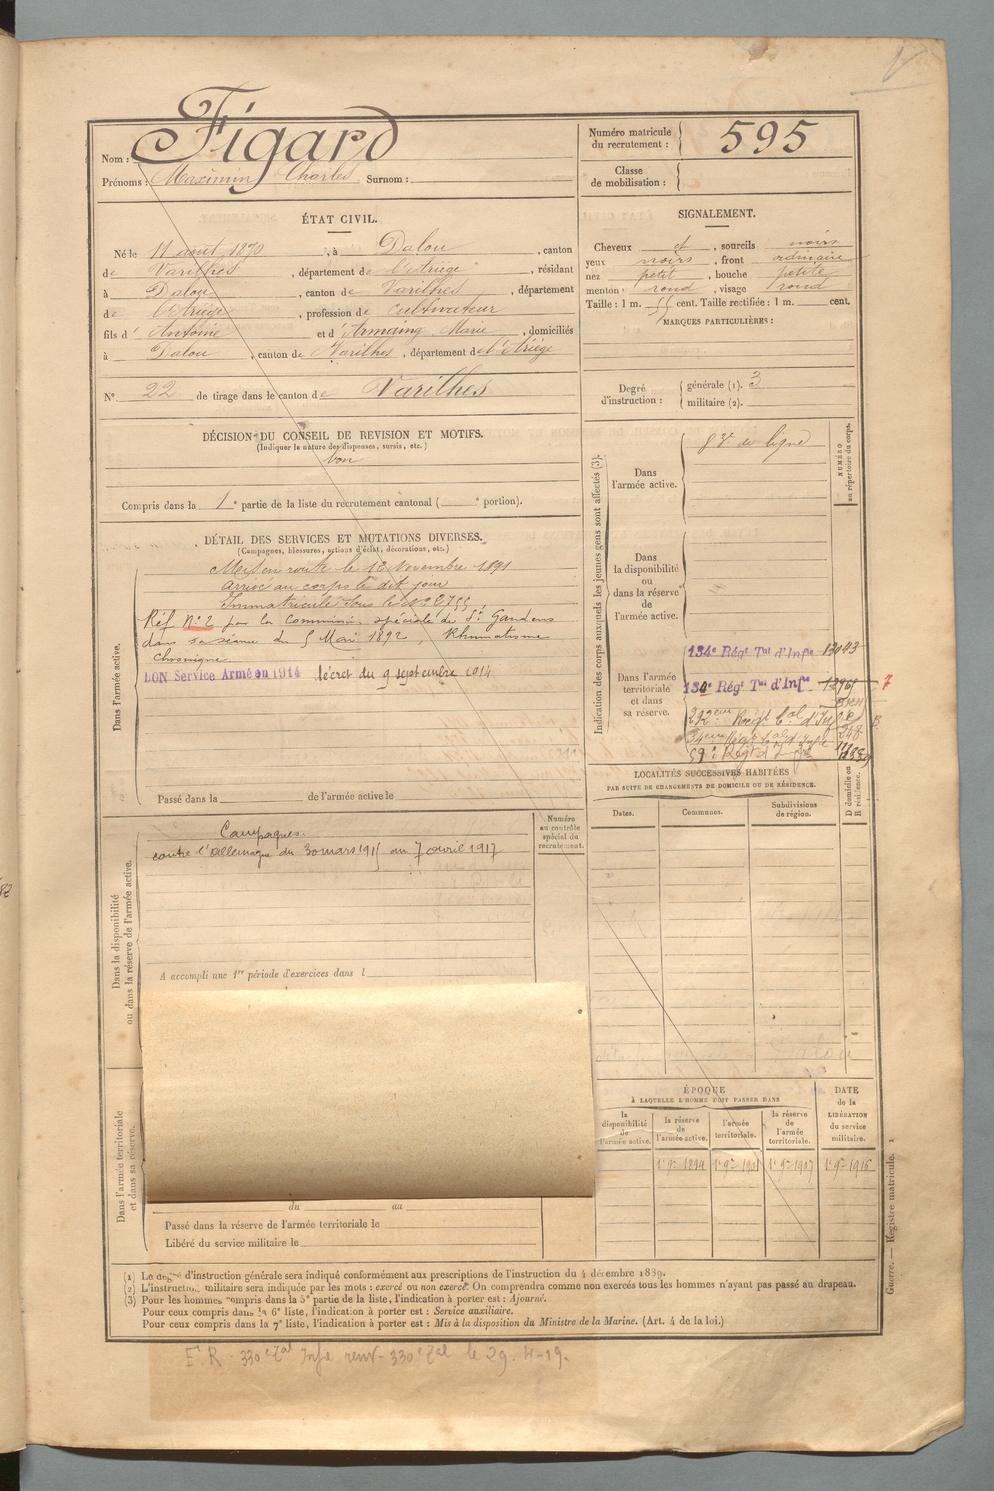 Nom : Figard
Prénoms : Maximin Charles Surnom :
Numéro matricule du recrutement : 595
Classe de mobilisation :
ÉTAT CIVIL.
Né le 11 août 1870, à Dalou, canton
de Varilhes, département de l'Ariège, résidant
à Dalou, canton de Varilhes, département
de l'Ariège, profession de cultivateur
fils d' Antoine et d' Armaing Marie, domiciliés
à Dalou, canton de Varilhes, département de l'Ariège
N° 22 de tirage dans le canton de Varilhes
SIGNALEMENT.
Cheveux et, sourcils noirs
yeux noirs, front ordinaire
nez petit, bouche petite
menton rond, visage rond
Taille : 1 m. 55 cent. Taille rectifiée : 1 m. cent.
MARQUES PARTICULIÈRES :
Degré d'instruction : générale (1). 3
militaire (2).
DÉCISION DU CONSEIL DE REVISION ET MOTIFS.
(Indiquer la nature des dispenses, sursis, etc.)
bon
Compris dans la 1e partie de la liste du recrutement cantonal ( e portion).
DÉTAIL DES SERVICES ET MUTATIONS DIVERSES.
(Campagnes, blessures, actions d'éclat, décorations, etc.)
Dans l'armée active.
Mis en route le 12 Novembre 1891
arrivé au corps le dit jour
Immatriculé sous le N° 2755
Réf N° 2 par la Commission spéciale de St Gaudens
dans sa séance du 5 Mai 1892 Rhumatisme
chronique
BON Service Armé en 1914 décret du 9 septembre 1914
Passé dans la de l'armée active le
Indication des corps auxquels les jeunes gens sont affectés (3).
NUMÉRO au répertoire du corps.
Dans l'armée active.
83e de ligne
Dans la disponibilité ou dans la réserve de l'armée active.
Dans l'armée territoriale et dans sa réserve.
134e Régt Tal d'Infie 13093
134e Régt Tal d'Infie 12965 7
292eme Régt
34eme
59e Régt d'Infie
LOCALITÉS SUCCESSIVES HABITÉES
PAR SUITE DE CHANGEMENTS DE DOMICILE OU DE RÉSIDENCE.
Dates. Communes. Subdivisions de région. D domicile ou R résidence.
Dans la disponibilité ou dans la réserve de l'armée active.
Numéro au contrôle spécial du recrutement.
Campagnes.
contre l'Allemagne du 30 mars 1915 au 7 avril 1917
A accompli une 1re période d'exercices dans l
Dans l'armée territoriale et dans sa réserve.
du au
Passé dans la réserve de l'armée territoriale le
Libéré du service militaire le
ÉPOQUE
À LAQUELLE L'HOMME DOIT PASSER DANS
la disponibilité de l'armée active. la réserve de l'armée active. l'armée territoriale. la réserve de l'armée territoriale. DATE de la LIBÉRATION du service militaire.
1er 9bre 1894 1er 9bre 1901 1er 9bre 1907 1er 9bre 1916
(1) Le degré d'instruction générale sera indiqué conformément aux prescriptions de l'instruction du 4 décembre 1889.
(2) L'instruction militaire sera indiquée par les mots : exercé ou non exercé. On comprendra comme non exercés tous les hommes n'ayant pas passé au drapeau.
(3) Pour les hommes compris dans la 5e partie de la liste, l'indication à porter est : Ajourné.
Pour ceux compris dans la 6e liste, l'indication à porter est : Service auxiliaire.
Pour ceux compris dans la 7e liste, l'indication à porter est : Mis à la disposition du Ministre de la Marine. (Art. 4 de la loi.)
Guerre. — Registre matricule. 1
F. R. 330e Tal Infie renv- 330e Tal le 29-4-19.